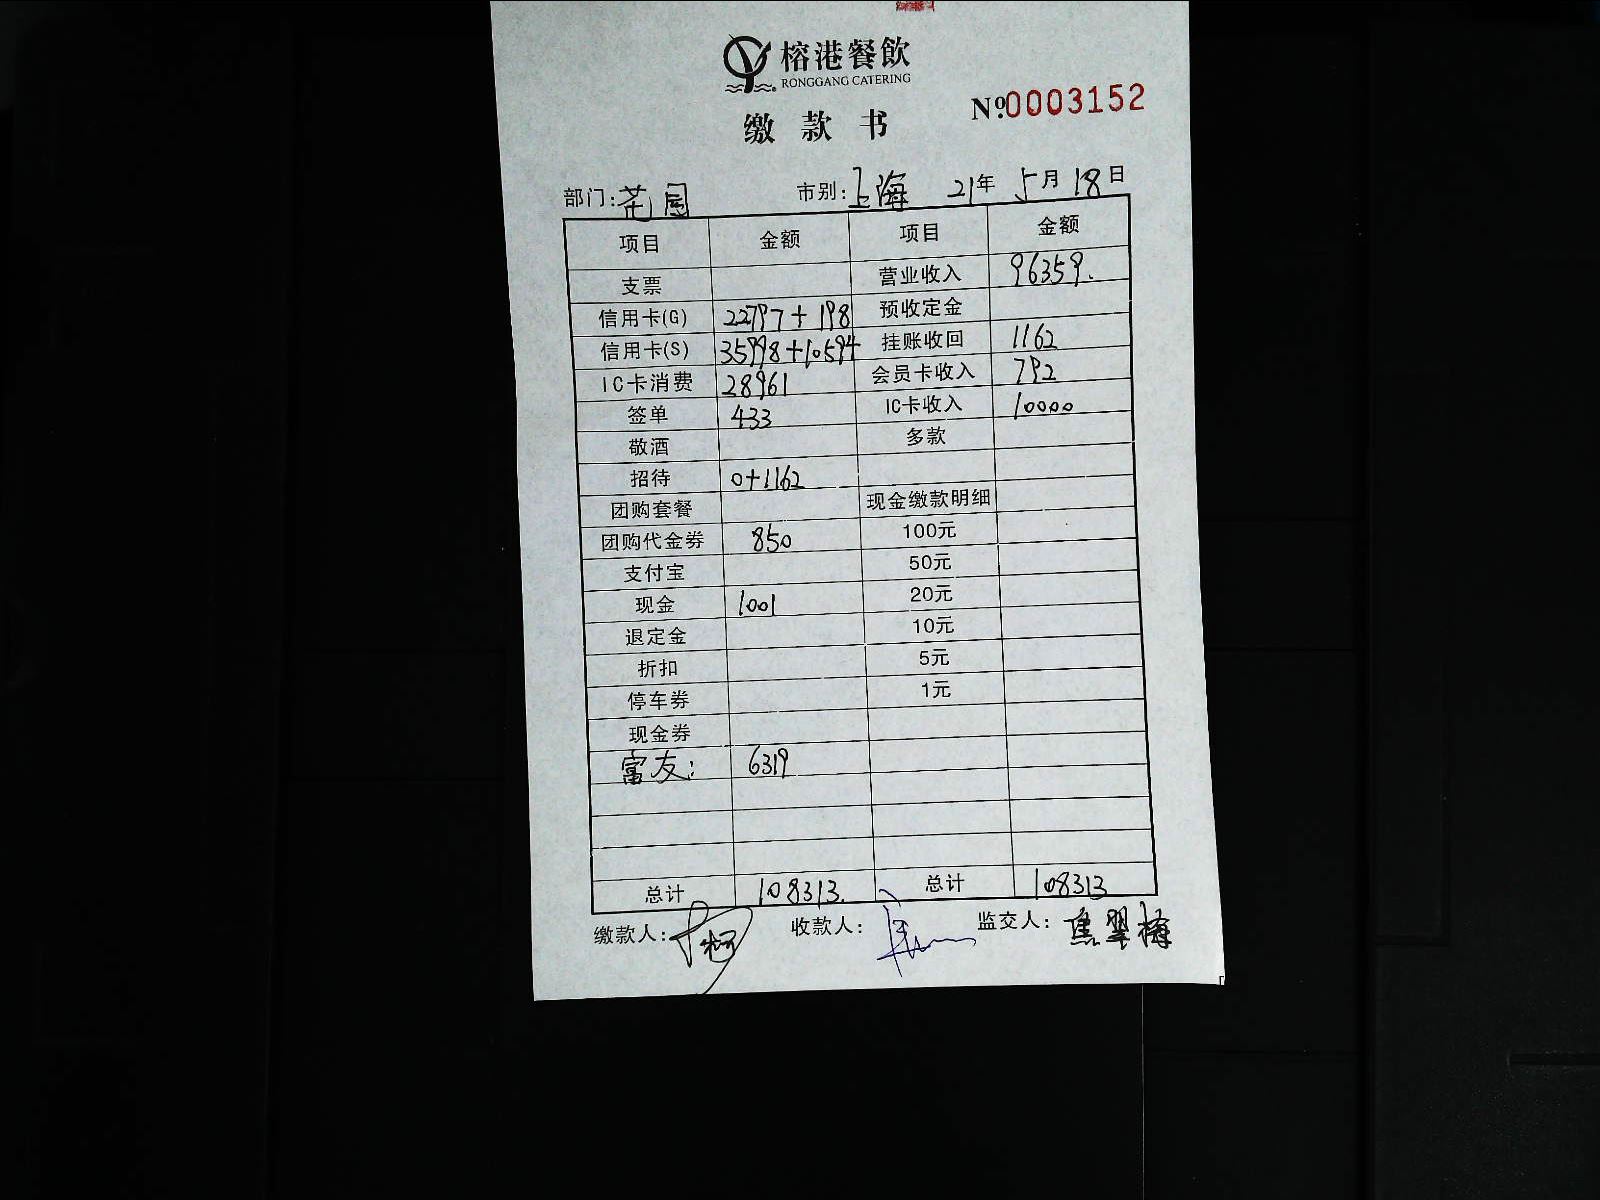 榕港餐飲
RONGGANG CATERING
缴款书 №0003152
部门:花园 市别:上海 21年 5月18日
项目 金额 项目 金额
支票 营业收入 96359.
信用卡(G) 22797+198 预收定金
信用卡(S) 35998+10594 挂账收回 1162
IC卡消费 28961 会员卡收入 792
签单 433 IC卡收入 10000
敬酒 多款
招待 0+1162
团购套餐 现金缴款明细
团购代金券 850 100元
支付宝 50元
现金 1001 20元
退定金 10元
折扣 5元
停车券 1元
现金券
富友: 6319
总计 108313. 总计 108313
缴款人: 收款人: 监交人:焦翠梅